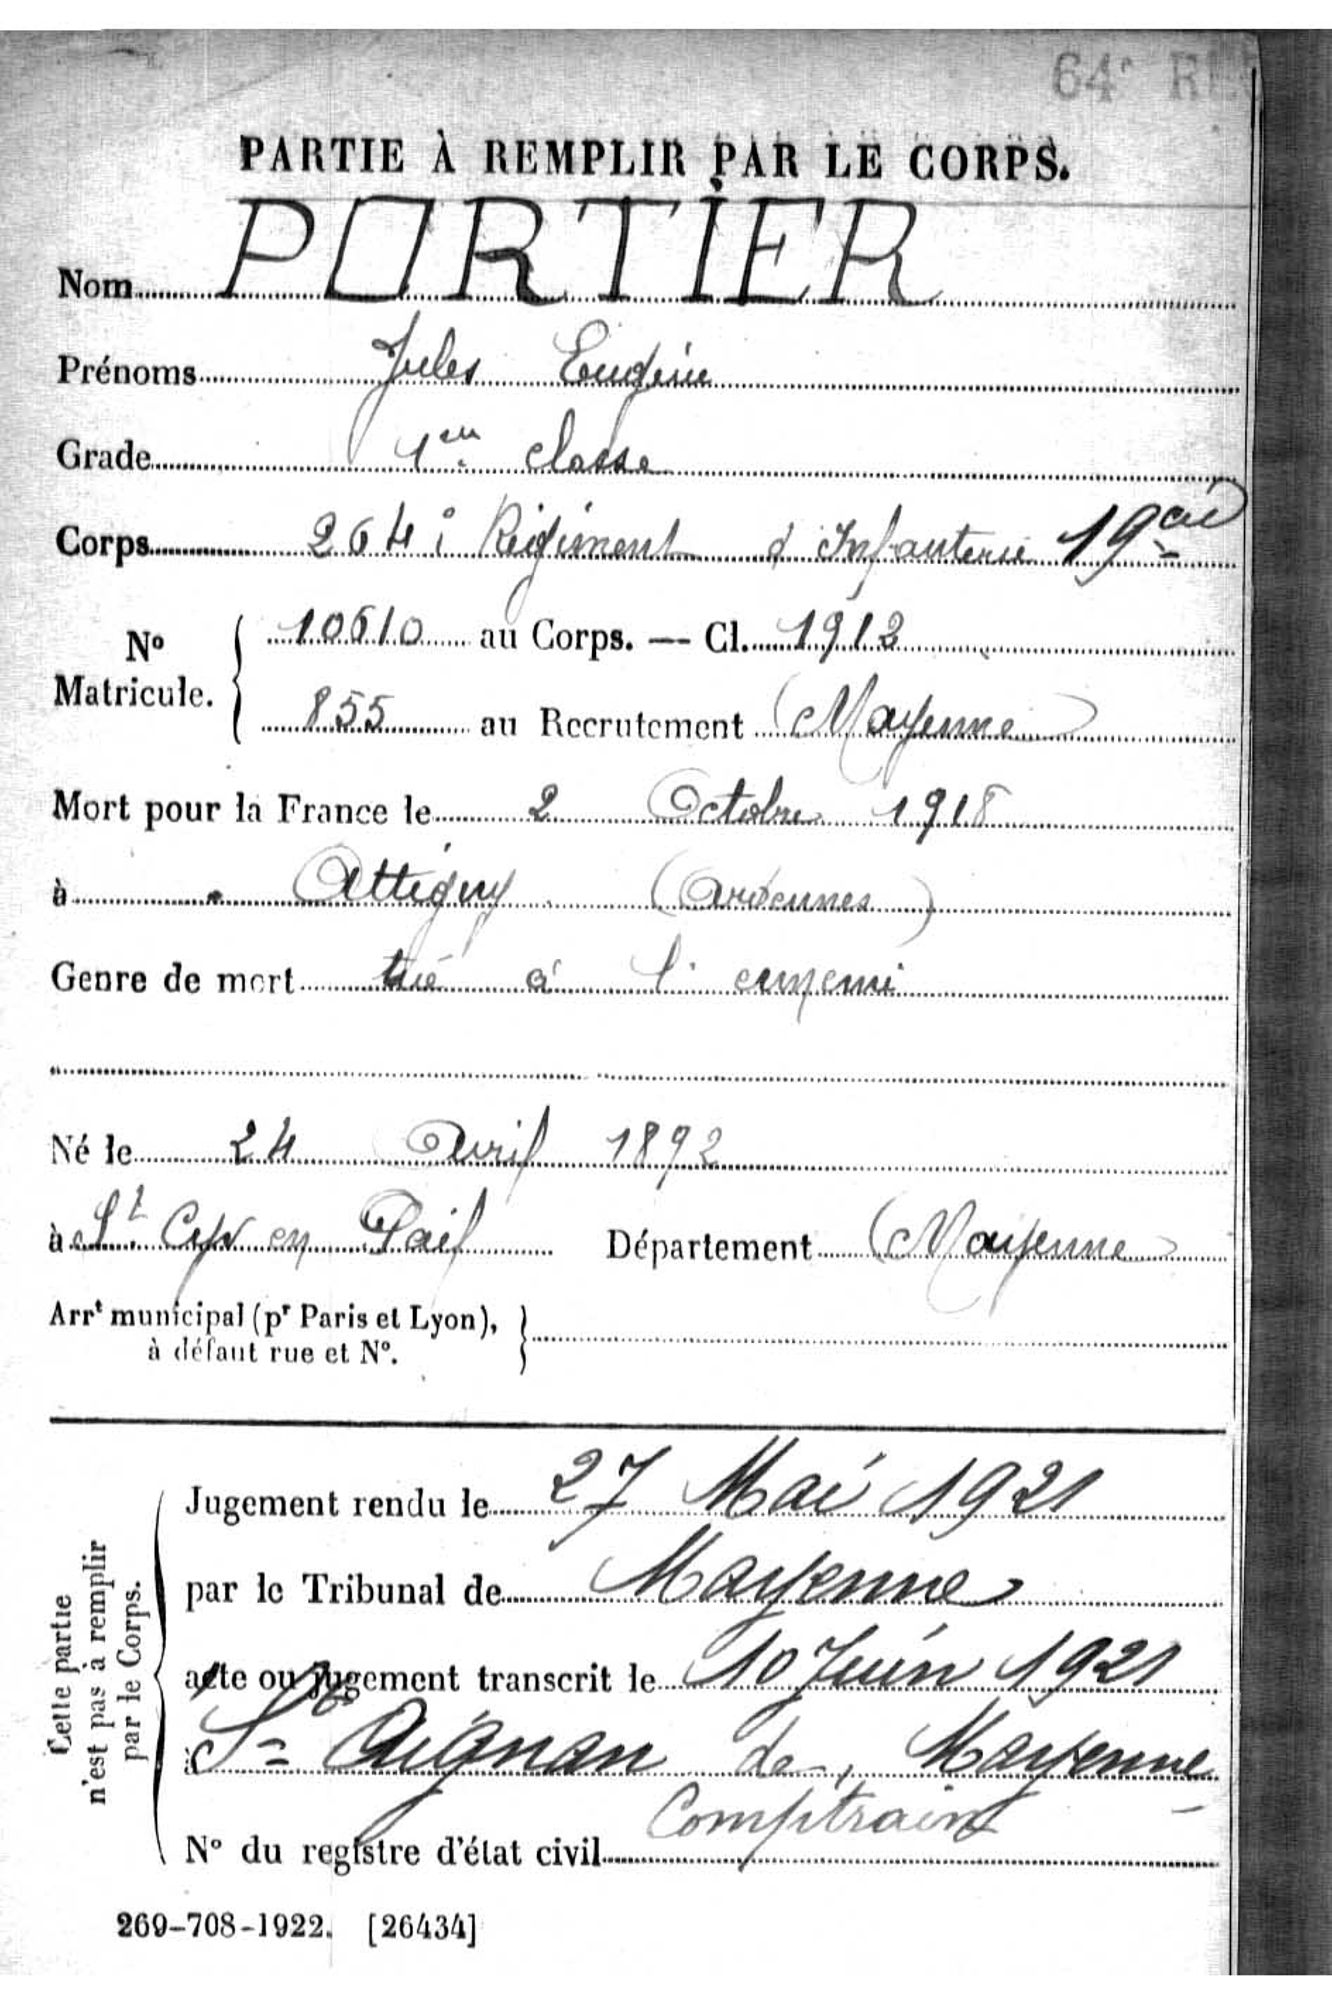 64e R
PARTIE À REMPLIR PAR LE CORPS.
Nom PORTIER
Prénoms Jules Eugène
Grade 1ere classe
Corps 264e Régiment d'Infanterie 19e Cie
No Matricule. { 10610 au Corps. — Cl. 1912
855 au Recrutement (Mayenne)
Mort pour la France le 2 Octobre 1918
à Attigny (Ardennes)
Genre de mort tué à l'ennemi
Né le 24 Avril 1892
à St. Cyr en Pail Département (Mayenne)
Arrt municipal (pr Paris et Lyon), }
à défaut rue et No.
Cette partie
n'est pas à remplir
par le Corps.
Jugement rendu le 27 Mai 1921
par le Tribunal de Mayenne
acte ou jugement transcrit le 10 Juin 1921
à St Aignan de, Mayenne
Comptrain
No du registre d'état civil
269-708-1922. [26434]